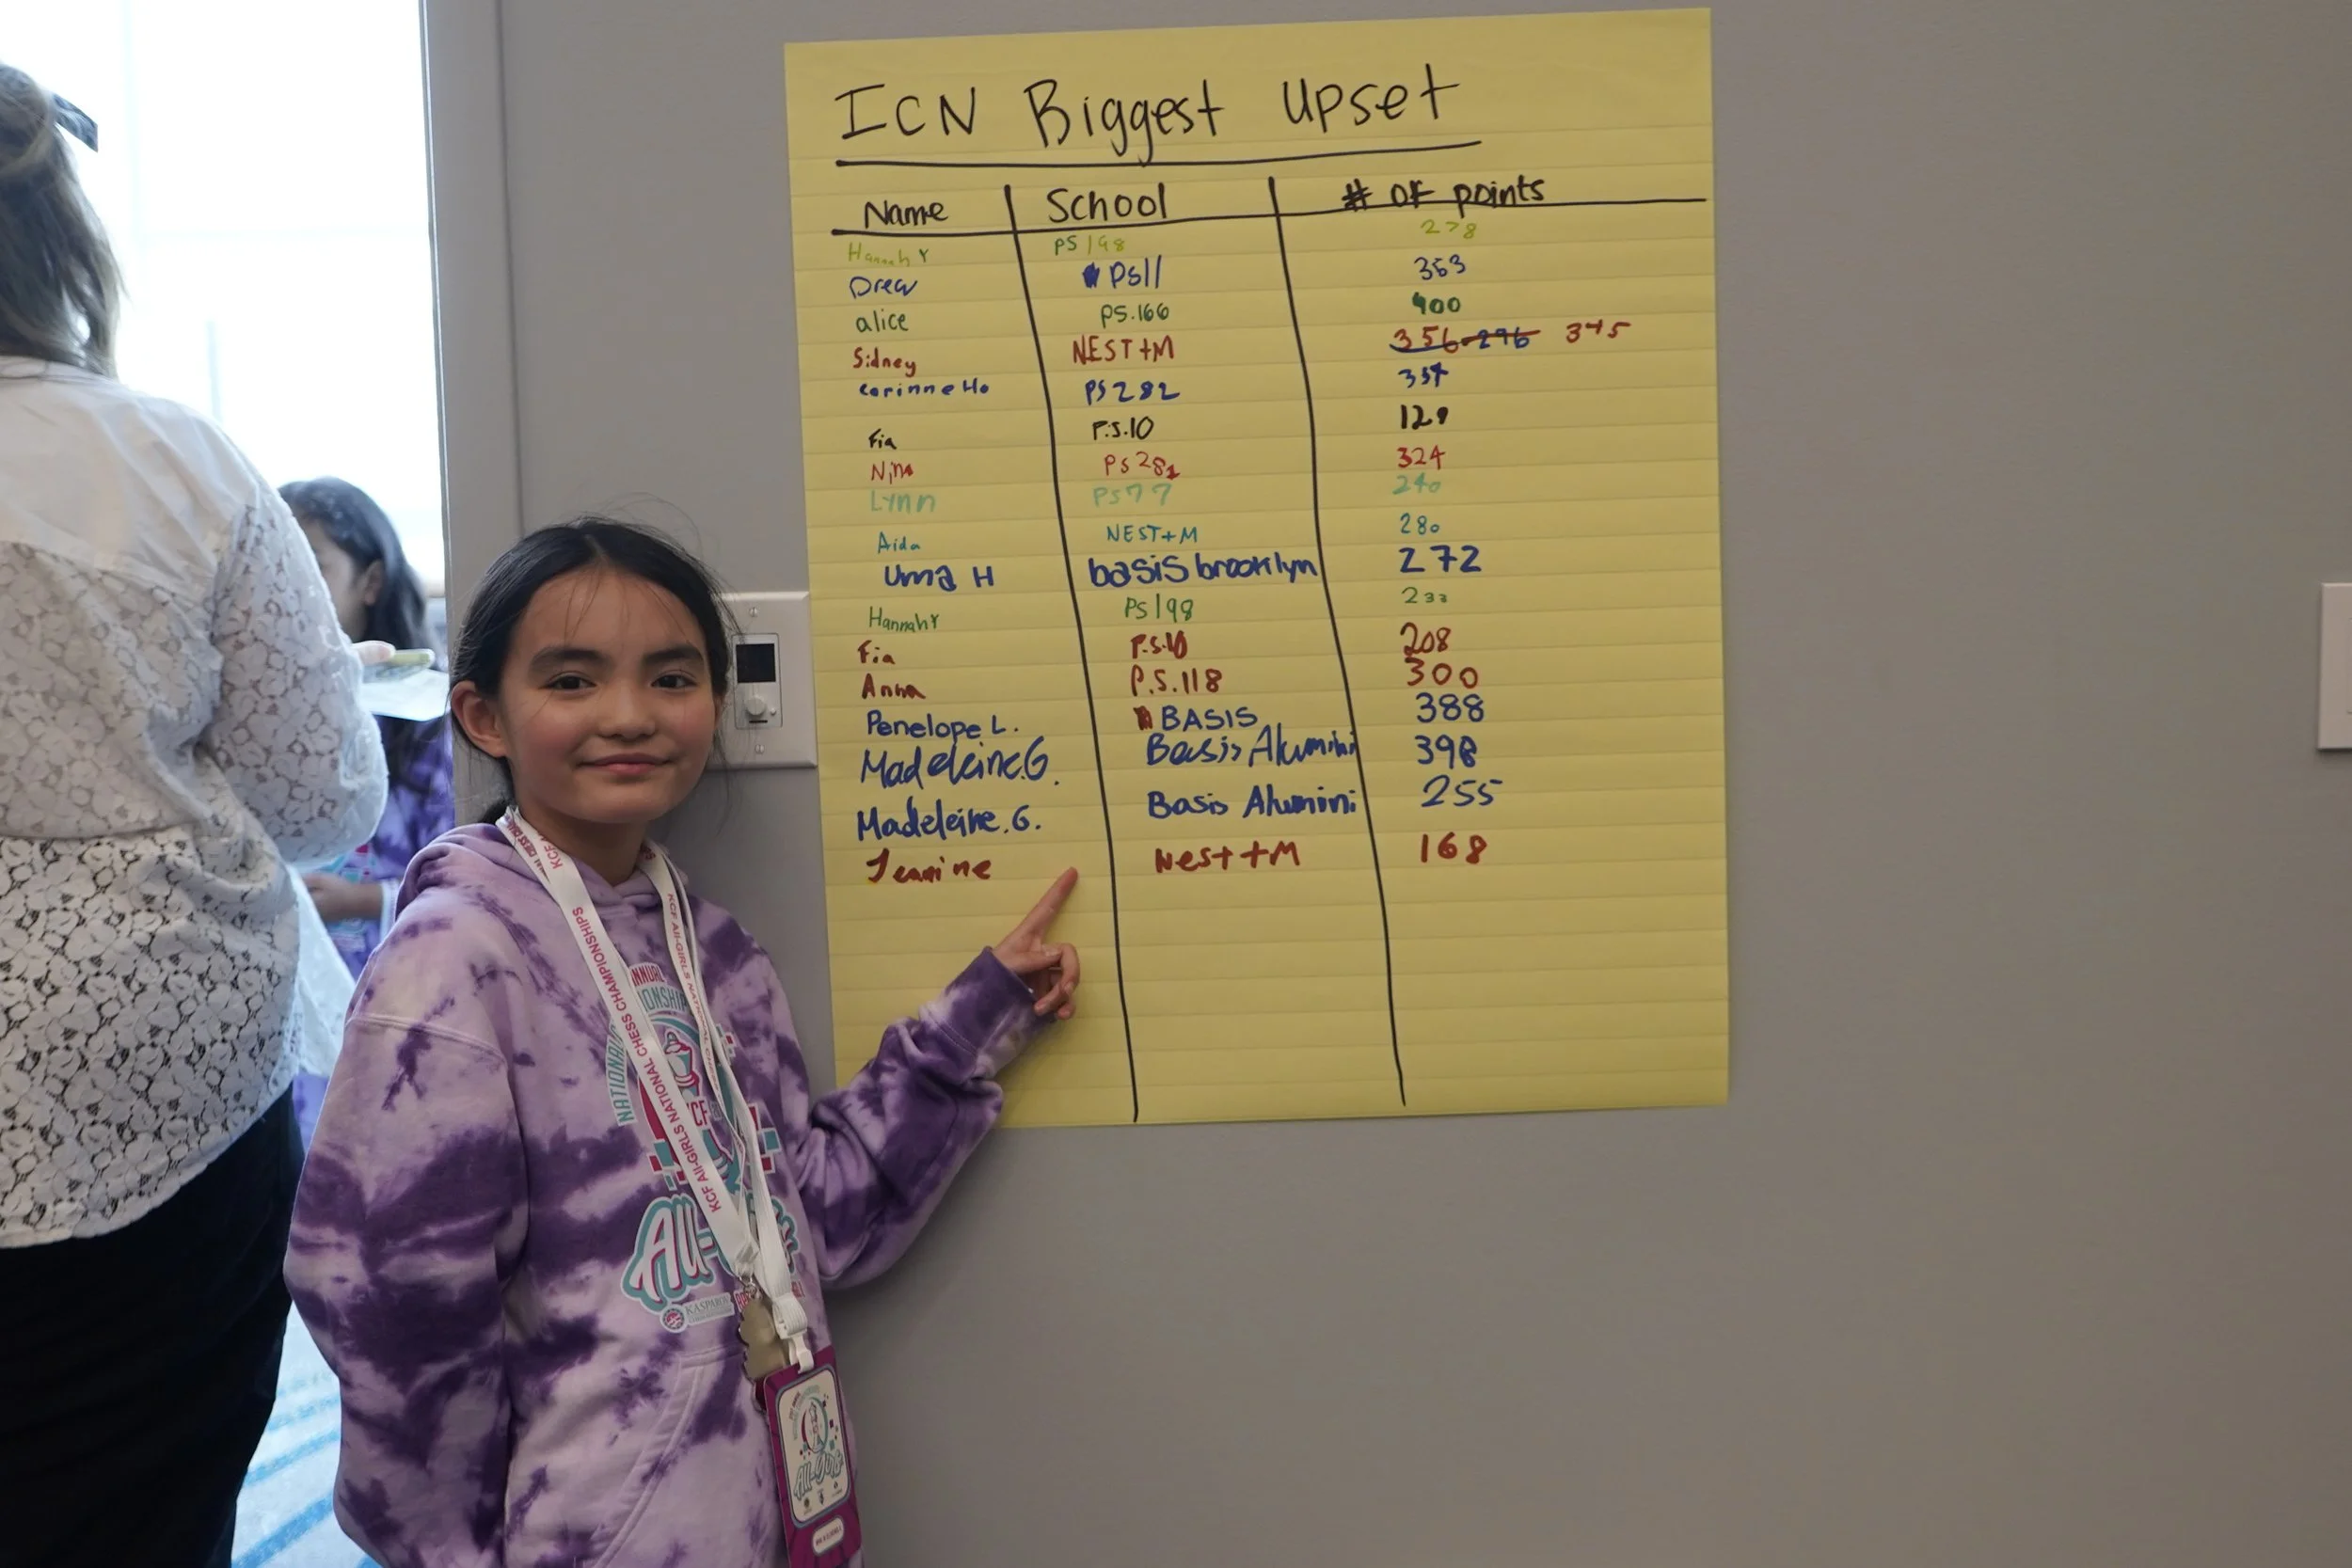 ICN Biggest Upset
Name School # of points
Hannah Y PS 198 278
Drew PS11 353
alice PS.166 400
Sidney NEST+M 356 296 345
Corinne Ho PS282 357
Fia P.S.10 129
Nina PS282 324
Lynn PS77 240
Aida NEST+M 280
Uma H basis brooklyn 272
Hannah Y PS198 233
Fia P.S.10 208
Anna P.S.118 300
Penelope L. BASIS 388
Madeleine.G. Basis Alumini 398
Madeleine.G. Basis Alumini 255
Jeanine Nest+M 168
KCF All-GIRLS NATIONAL CHESS CHAMPIONSHIPS
KCF All-GIRLS NATIONAL
ANNUAL
NATIONAL
KCF
All-
KASPAROV
All-Girls